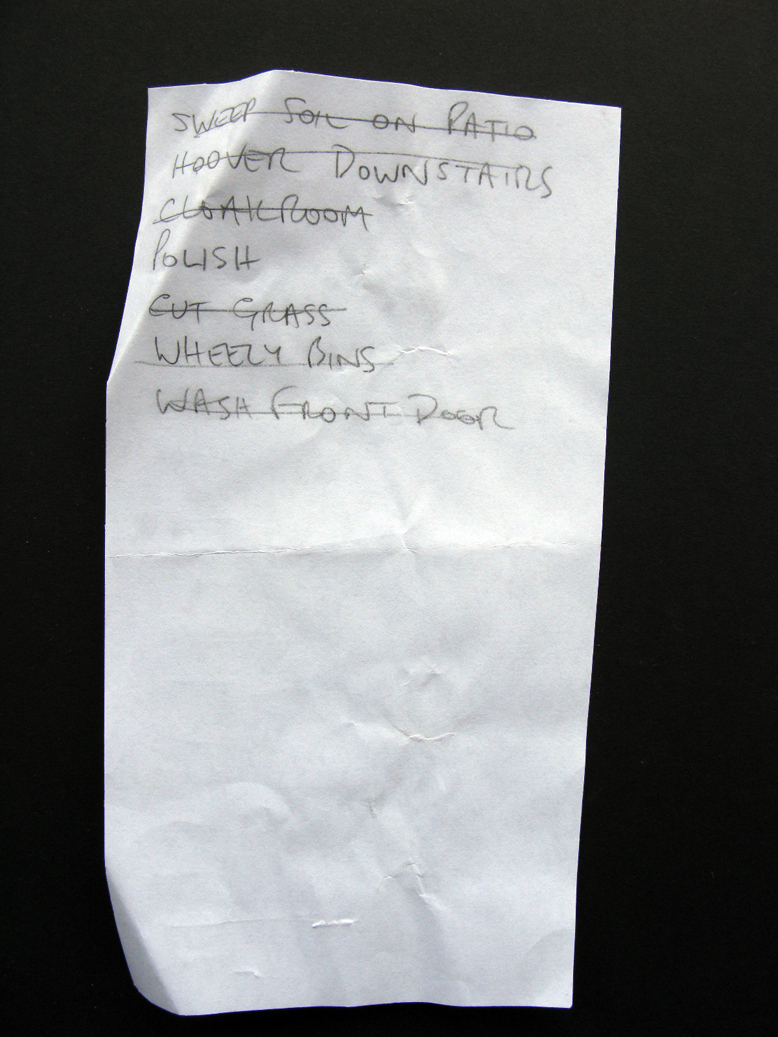 SWEEP SOIL ON PATIO
HOOVER DOWNSTAIRS
CLOAKROOM
POLISH
CUT GRASS
WHEELY BINS
WASH FRONT DOOR